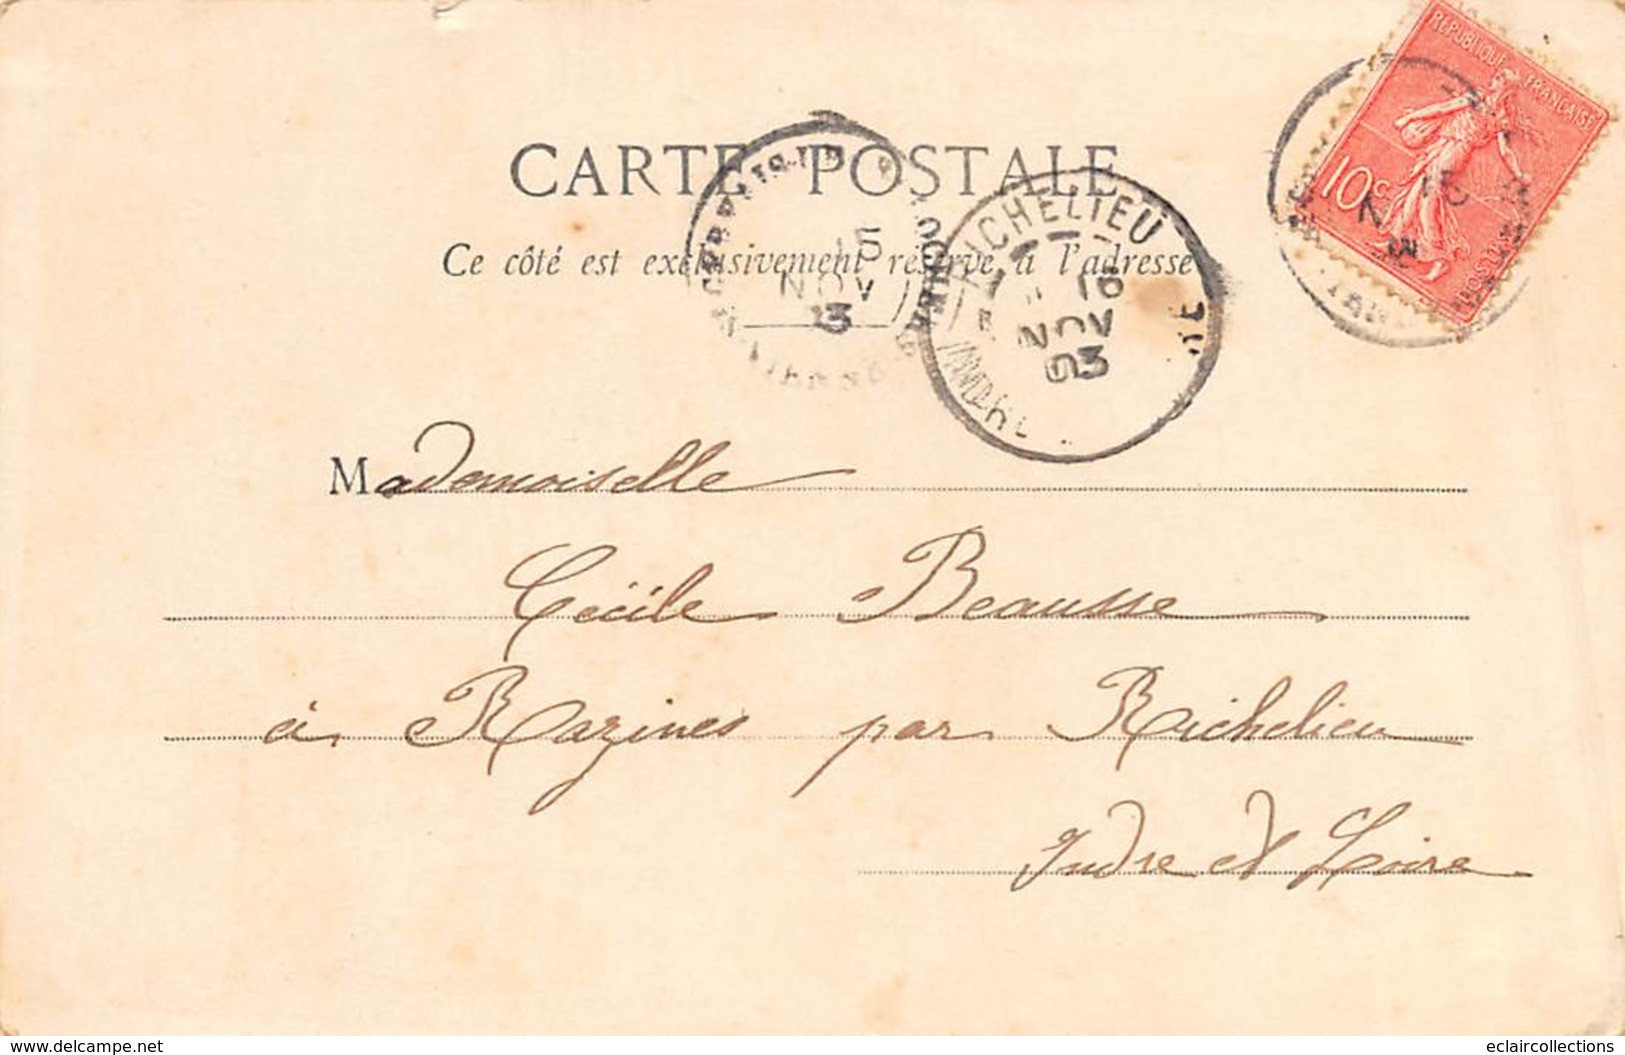 RÉPUBLIQUE FRANÇAISE
10c
CARTE POSTALE
Ce côté est exclusivement réservé à l'adresse
15
NOV
3
RICHELIEU
16
NOV
03
INDRE
15
N
3
Mademoiselle
Cécile Beausse
à Razines par Richelieu
Indre et Loire
delcampe.net
eclaircollections